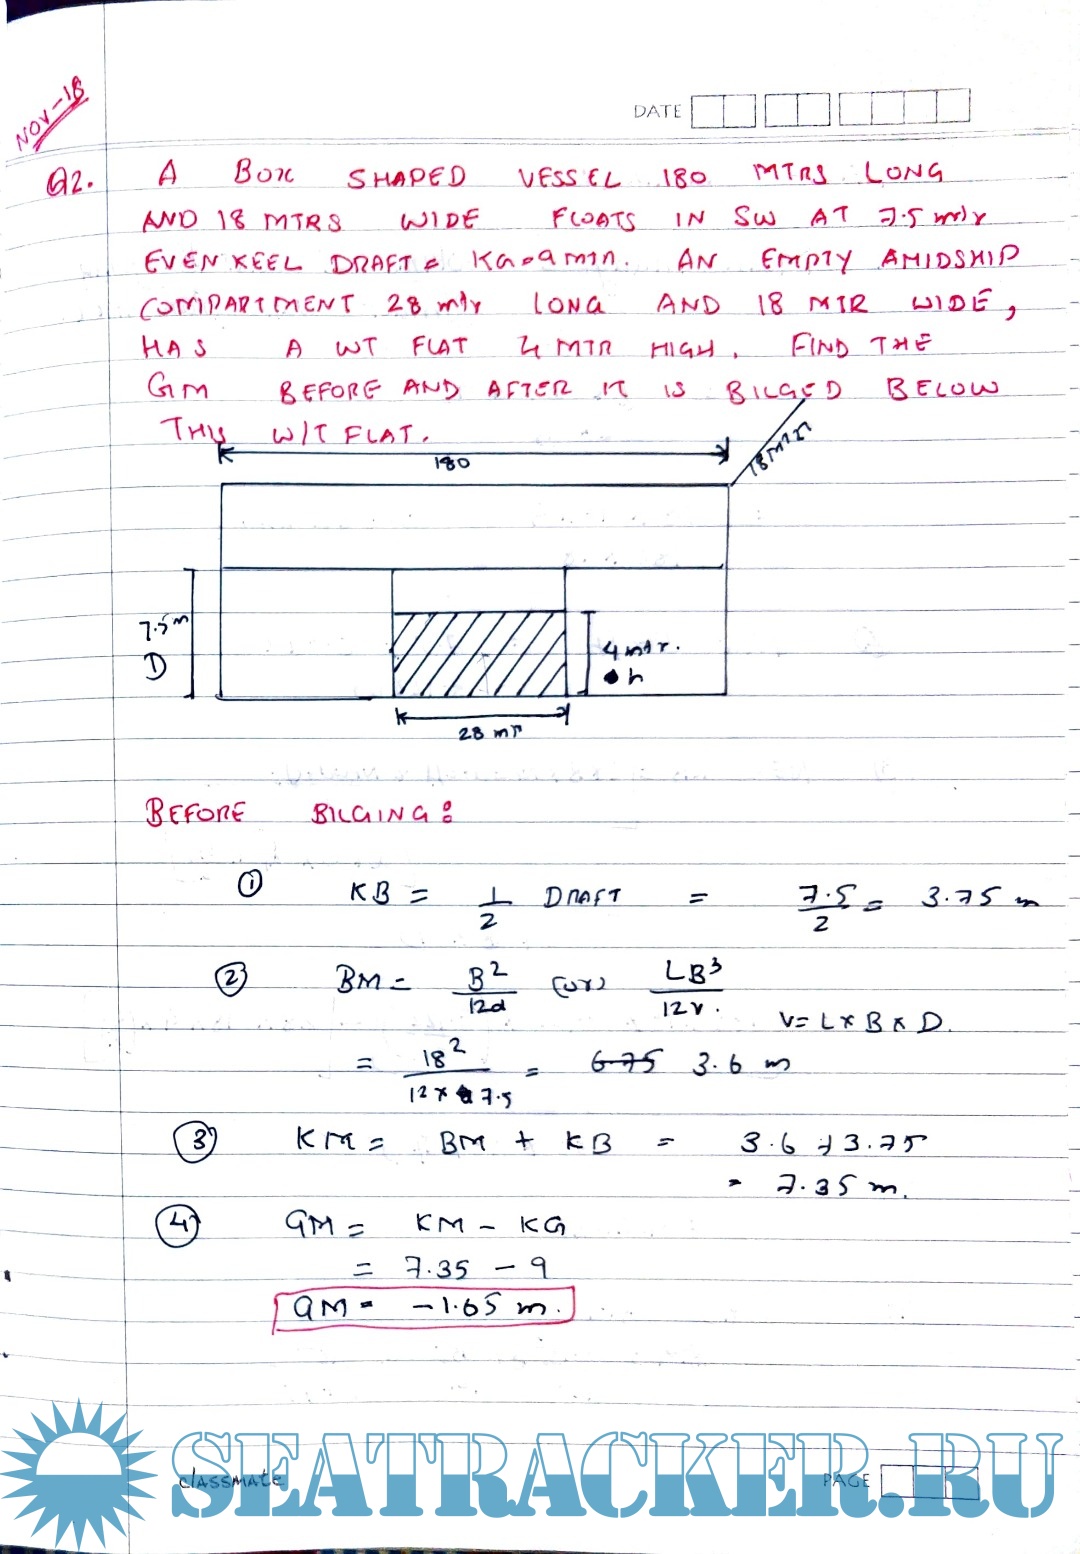 NOV-18
DATE
Q2. A BOX SHAPED VESSEL 180 MTRS LONG
AND 18 MTRS WIDE FLOATS IN SW AT 7.5 mtr
EVEN KEEL DRAFT & KG=9 mtr. AN EMPTY AMIDSHIP
COMPARTMENT 28 mtr LONG AND 18 MTR WIDE,
HAS A WT FLAT 4 MTR HIGH. FIND THE
GM BEFORE AND AFTER IT IS BILGED BELOW
THIS W/T FLAT.
180
18 MTR
7.5 m
D
4 mtr.
h
28 mtr
BEFORE BILGING:
① KB = 1/2 DRAFT = 7.5/2 = 3.75 m
② BM = B²/12d (or) LB³/12V.
V= L x B x D.
= 18²/12 x 7.5 = 6.75 3.6 m
③ KM = BM + KB = 3.6 + 3.75
= 7.35 m.
④ GM = KM - KG
= 7.35 - 9
GM = -1.65 m.
classmate
PAGE
SEATRACKER.RU